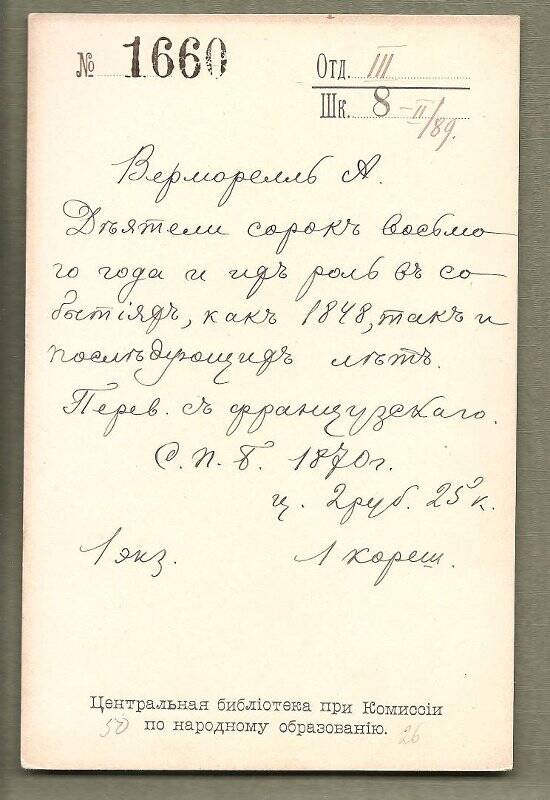 № 1660
Отд. III
Шк. 8 – II/89.
Верморелль А.
Дѣятели сорокъ восьмо-
го года и ихъ роль въ со-
бытіяхъ, какъ 1848, такъ и
послѣдующихъ лѣтъ.
Перев. съ французскаго.
С.П.Б. 1870 г.
ц. 2 руб. 25 к.
1 экз. 1 кореш.
Центральная библіотека при Комиссіи
по народному образованію.
50 26